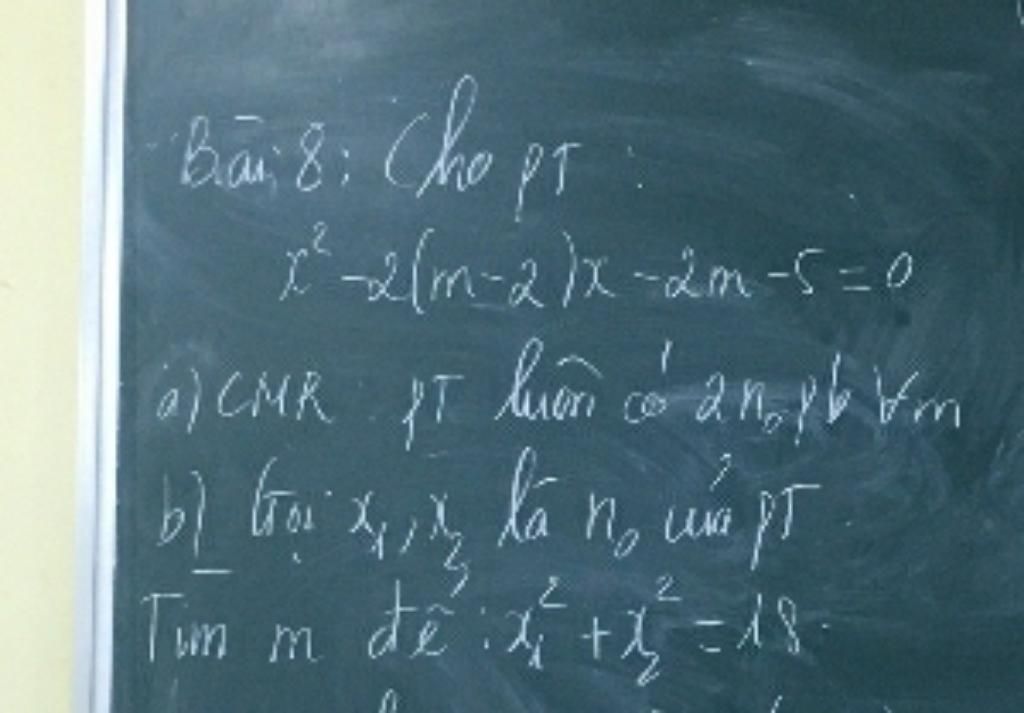 Bài 8: Cho pT :
x² - 2(m-2)x - 2m - 5 = 0
a) CMR pT luôn có 2 n₀ pb ∀m
b) Gọi x₁, x₂ là n₀ của pT
Tìm m để : x₁² + x₂² = 18.